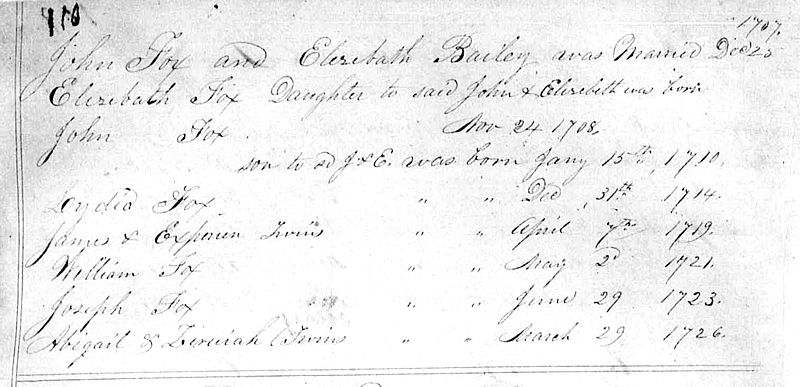 110
1707.
John Fox and Elizebath Bailey was Married Decd 25
Elizebath Fox Daughter to said John & Elizebeth was born
Nov 24 1708.
John Fox
son to sd J & E. was born Jany 15th, 1710.
Lydia Fox " " Decd 31th 1714.
James & Experien Twins " " April 7th 1719.
William Fox " " May 2d 1721.
Joseph Fox " " June 29 1723.
Abigail & Zeruiah Twins " " March 29 1726.